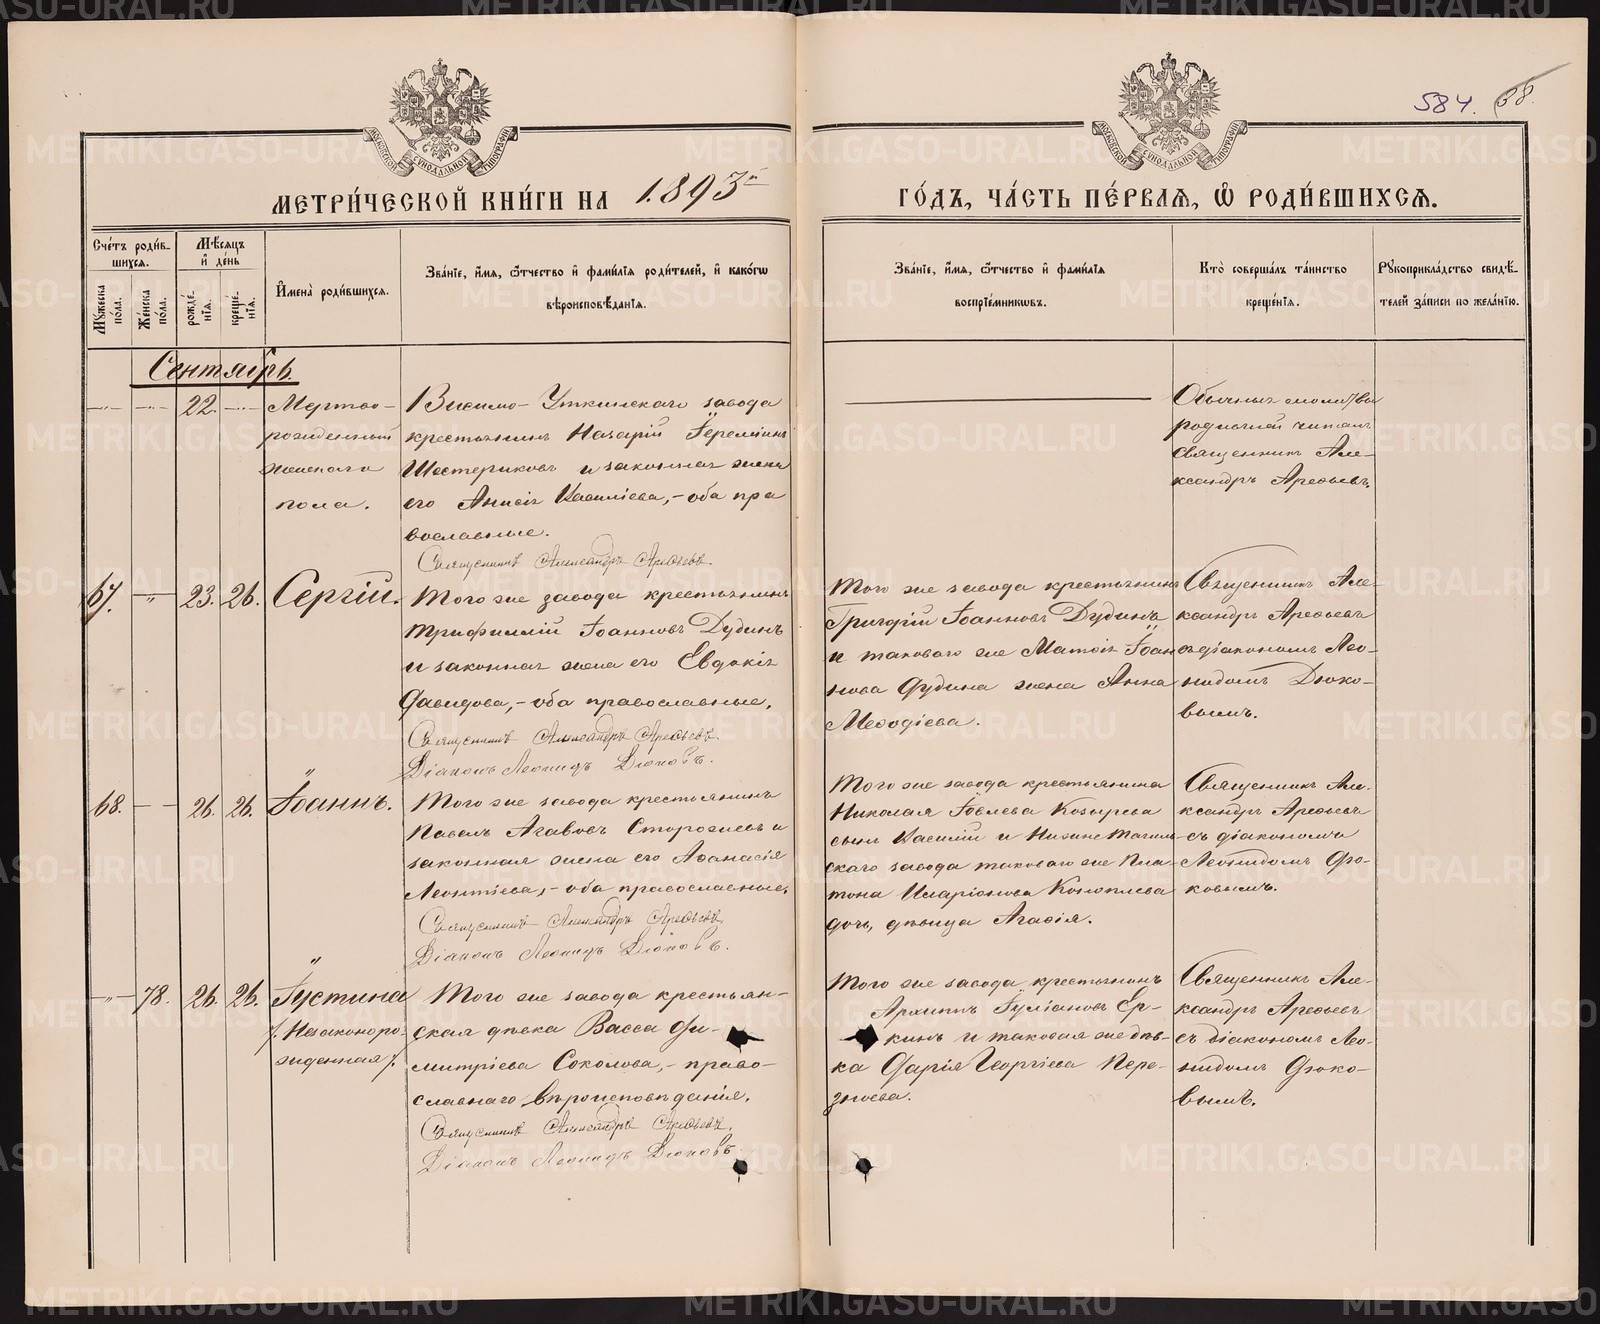 584. 38.
МЕТРИ́ЧЕСКОЙ КНИ́ГИ НА 1893й
ГО́ДЪ, ЧА́СТЬ ПЕ́РВАѦ, Ѡ҆ РОДИ́ВШИХСѦ.
Сче́тъ роди́в-
шихсѧ.
Мѣ́сѧцъ
и҆ де́нь
Мꙋ́жеска по́ла.
Же́нска по́ла.
рожде́-
нїѧ.
креще́-
нїѧ.
И҆мена̀ роди́вшихсѧ.
Зва́нїе, и҆́мѧ, ѻ҆́тчество и҆ фами́лїѧ роди́телей, и҆ како́гѡ
вѣроисповѣ́данїѧ.
Зва́нїе, и҆́мѧ, ѻ҆́тчество и҆ фами́лїѧ
воспрїе́мникѡвъ.
Кто̀ соверша́лъ та́инство
креще́нїѧ.
Рꙋкоприкла́дство свидѣ́-
телей за́писи по жела́нїю.
Сентябрь.
22.
Мертво-
рожденный
женскаго
пола.
Висимо-Уткинскаго завода
крестьянинъ Назарій Іереміинъ
Шестериковъ и законная жена
его Анисія Василіева,- оба пра
вославные.
Священникъ Александръ Арефьевъ.
Обычныя молитвы
родильной читалъ
священникъ Але-
ксандръ Арефьевъ.
67. 23. 26. Сергій.
Того же завода крестьянинъ
Трифиллій Іоанновъ Дудинъ
и законная жена его Евдокія
Давидова,- оба православные.
Священникъ Александръ Арефьевъ.
Діаконъ Леонидъ Дюковъ.
Того же завода крестьянинъ
Григорій Іоанновъ Дудинъ
и таковаго же Матѳія Іоан
нова Дудина жена Анна
Меѳодіева.
Священникъ Але-
ксандръ Арефьевъ
съ діакономъ Лео-
нидомъ Дюко-
вымъ.
68. 26. 26. Іоаннъ.
Того же завода крестьянинъ
Павелъ Агавовъ Сторожевъ и
законная жена его Аѳанасія
Леонтіева,- оба православные.
Священникъ Александръ Арефьевъ.
Діаконъ Леонидъ Дюковъ.
Того же завода крестьянина
Николая Іовлева Козырева
сынъ Василій и Нижне Тагиль-
скаго завода таковаго же Пла-
тона Иларіонова Коноплева
дочь, дѣвица Агафія.
Священникъ Але-
ксандръ Арефьевъ
съ діакономъ
Леонидомъ Дю-
ковымъ.
78. 26. 26. Іустина
/. Незаконоро-
жденная /.
Того же завода крестьян-
ская дѣвка Васса Ди-
митріева Соколова,- право-
славнаго вѣроисповѣданія.
Священникъ Александръ Арефьевъ.
Діаконъ Леонидъ Дюковъ.
Того же завода крестьянинъ
Архиппъ Іуліановъ Ер-
кинъ и таковая же дѣв-
ка Дарія Георгіева Пере-
знова.
Священникъ Але-
ксандръ Арефьевъ
съ діакономъ Лео-
нидомъ Дюко-
вымъ.
METRIKI.GASO-URAL.RU